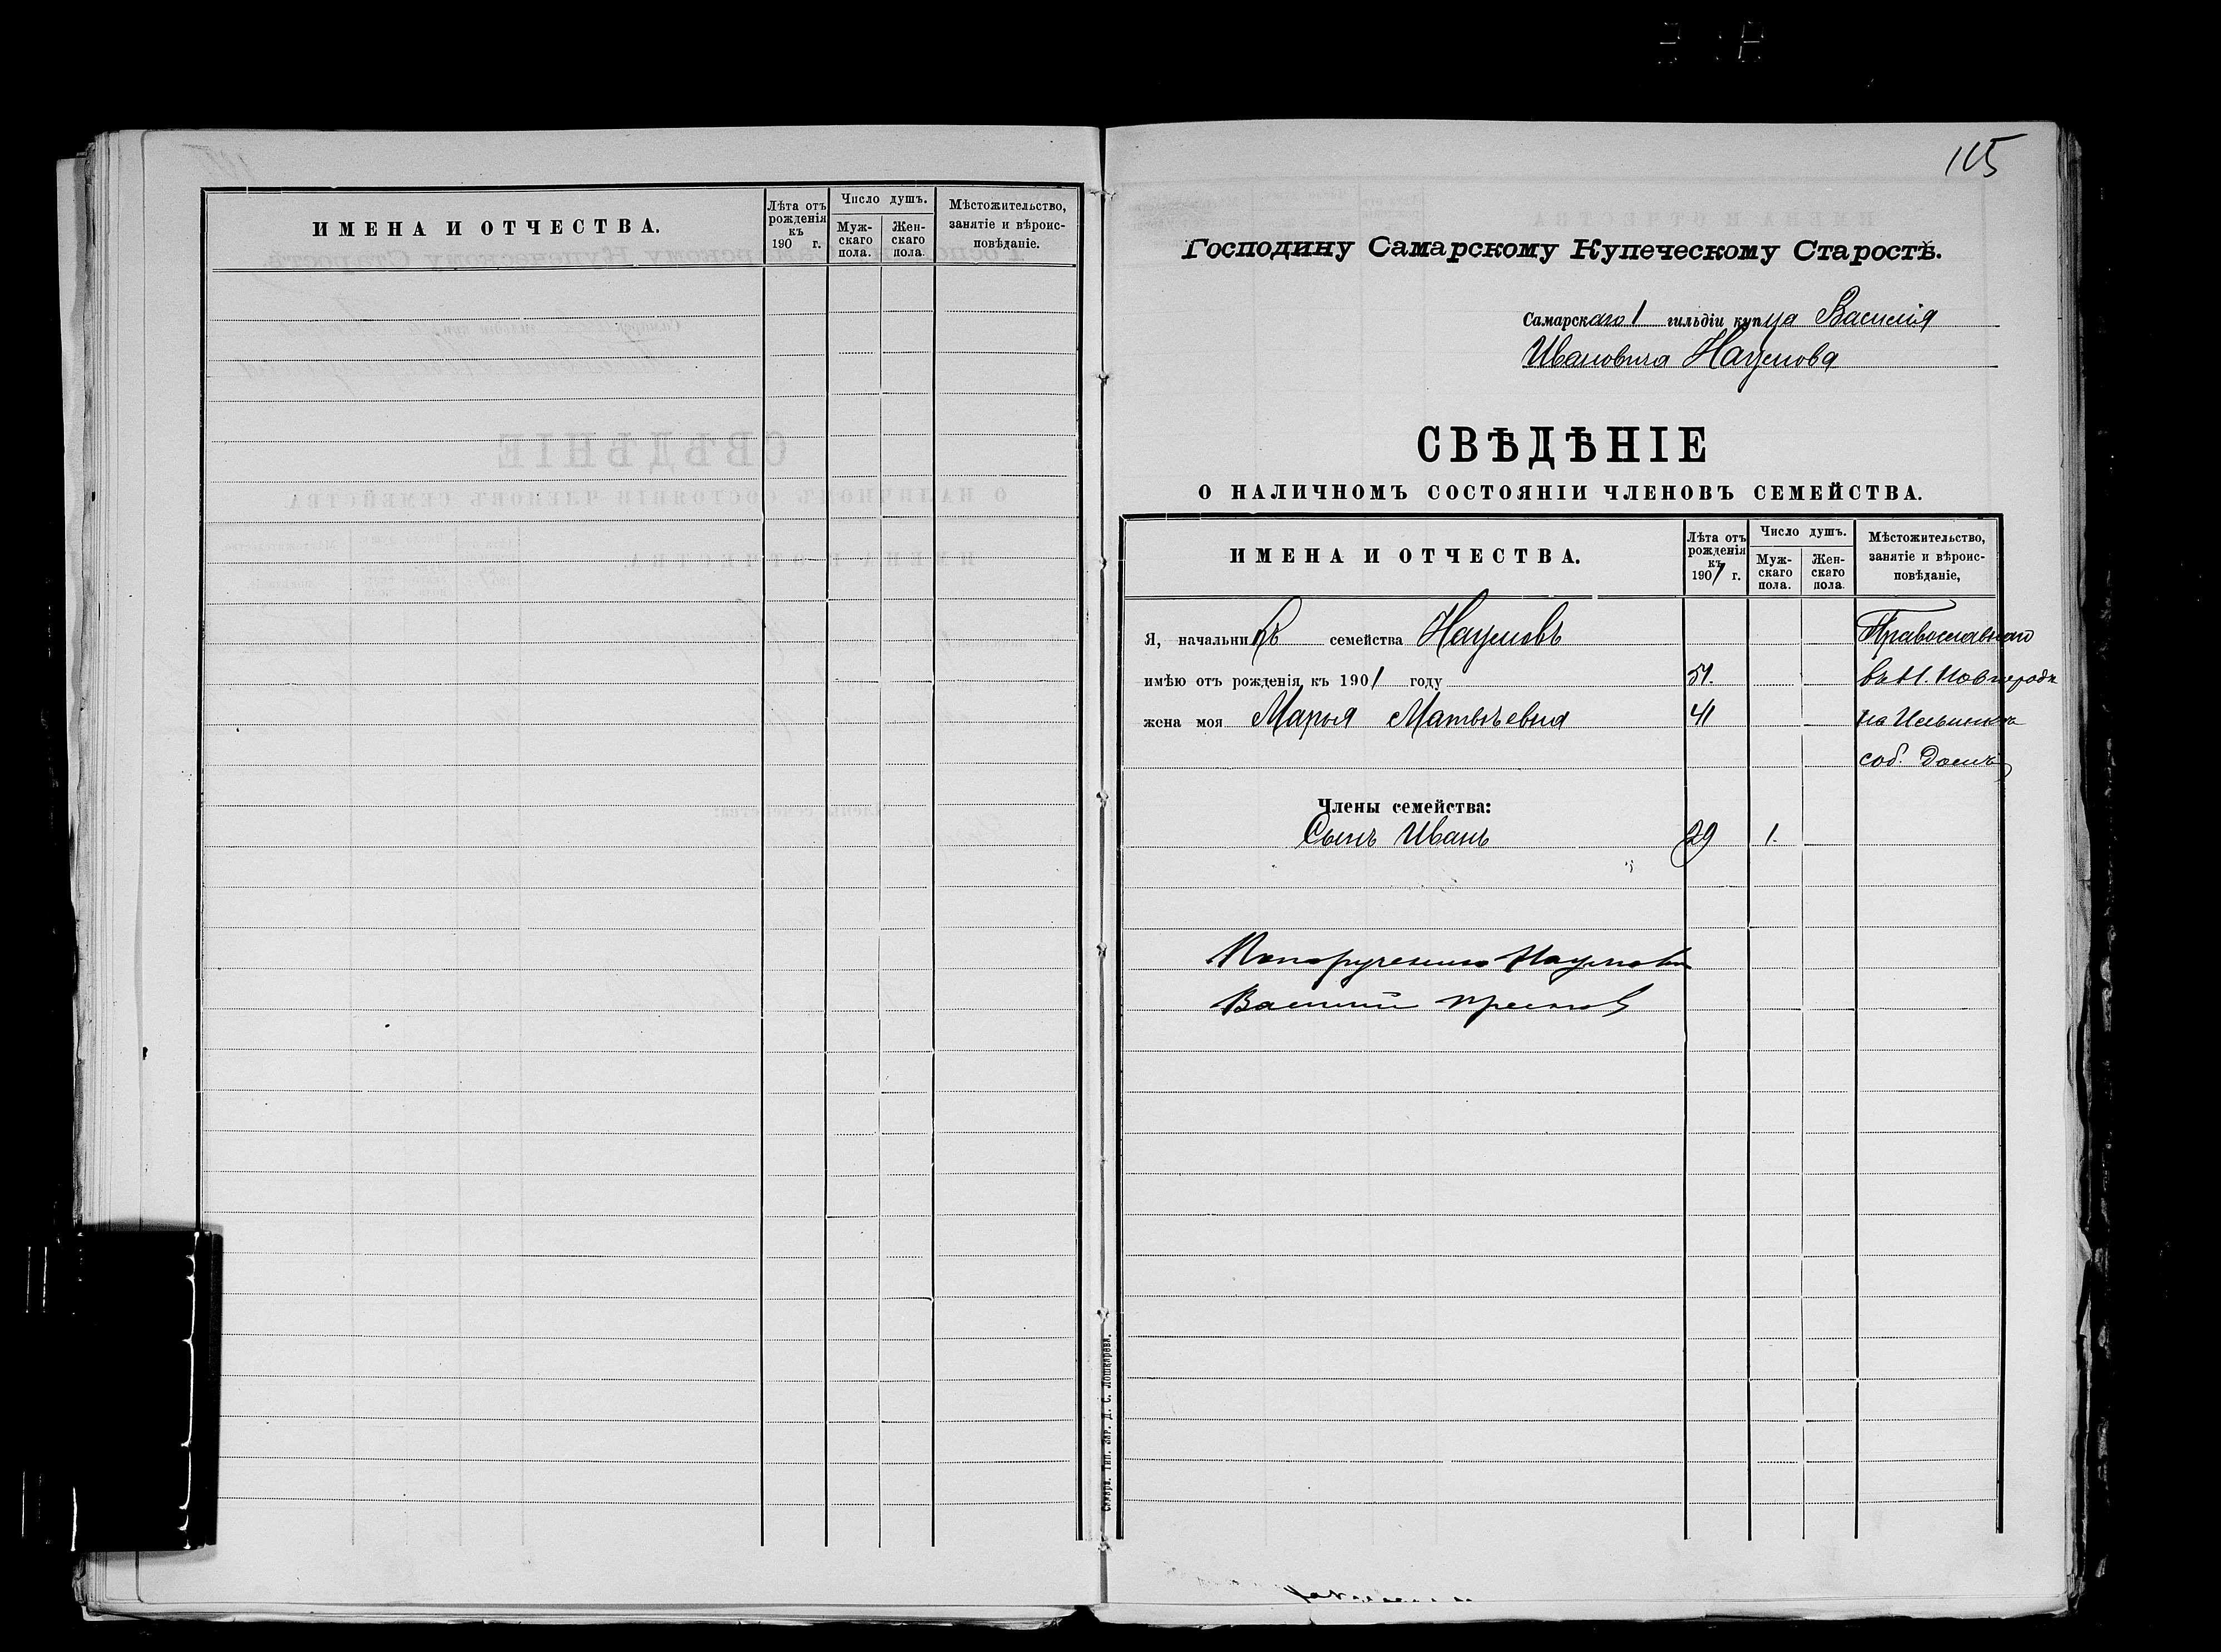 ИМЕНА И ОТЧЕСТВА.
Лѣта отъ рожденія къ 190 г.
Число душъ.
Мужскаго пола.
Женскаго пола.
Мѣстожительство, занятіе и вѣроисповѣданіе.
105
Господину Самарскому Купеческому Старостѣ.
Самарскаго 1 гильдіи купца Василія
Ивановича Наумова
СВѢДѢНІЕ
О НАЛИЧНОМЪ СОСТОЯНІИ ЧЛЕНОВЪ СЕМЕЙСТВА.
ИМЕНА И ОТЧЕСТВА.
Лѣта отъ рожденія къ 1901 г.
Число душъ.
Мужскаго пола.
Женскаго пола.
Мѣстожительство, занятіе и вѣроисповѣданіе,
Я, начальникъ семейства Наумовъ
имѣю отъ рожденія къ 1901 году 51. въ Н. Новгородѣ
жена моя Марья Матвѣевна 41 на Ильинкѣ
соб. домъ
Члены семейства:
Сынъ Иванъ 29 1.
По порученію Наумова
Василий
Самара. Тип. Зар. Д. С. Лошкарева.